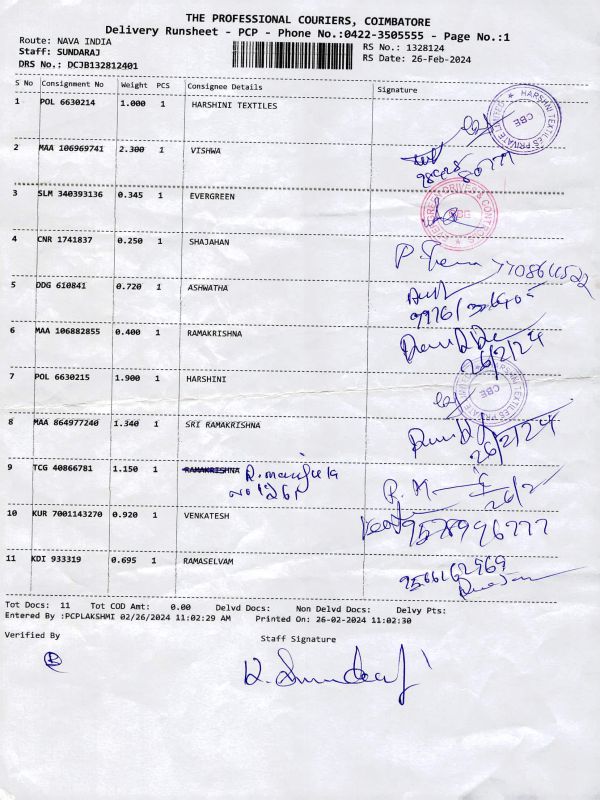 THE PROFESSIONAL COURIERS, COIMBATORE
Delivery Runsheet - PCP - Phone No.:0422-3505555 - Page No.:1
Route: NAVA INDIA
RS No.: 1328124
Staff: SUNDARAJ
RS Date: 26-Feb-2024
DRS No.: DCJB132812401
S No Consignment No Weight PCS Consignee Details Signature
1 POL 6630214 1.000 1 HARSHINI TEXTILES
HARSHNI TEXTILES PRIVATE LIMITED CBE
2 MAA 106969741 2.300 1 VISHWA
3 SLM 340393136 0.345 1 EVERGREEN
4 CNR 1741837 0.250 1 SHAJAHAN
5 DDG 610841 0.720 1 ASHWATHA
6 MAA 106882855 0.400 1 RAMAKRISHNA
26/2/24
7 POL 6630215 1.900 1 HARSHINI
CBE
8 MAA 864977240 1.340 1 SRI RAMAKRISHNA
26/2/24
9 TCG 40866781 1.150 1 RAMAKRISHNA R. manjula
R. M 26/2
10 KUR 7001143270 0.920 1 VENKATESH
9578996777
11 KDI 933319 0.695 1 RAMASELVAM
9566162969
Tot Docs: 11 Tot COD Amt: 0.00 Delvd Docs: Non Delvd Docs: Delvy Pts:
Entered By :PCPLAKSHMI 02/26/2024 11:02:29 AM Printed On: 26-02-2024 11:02:30
Verified By Staff Signature